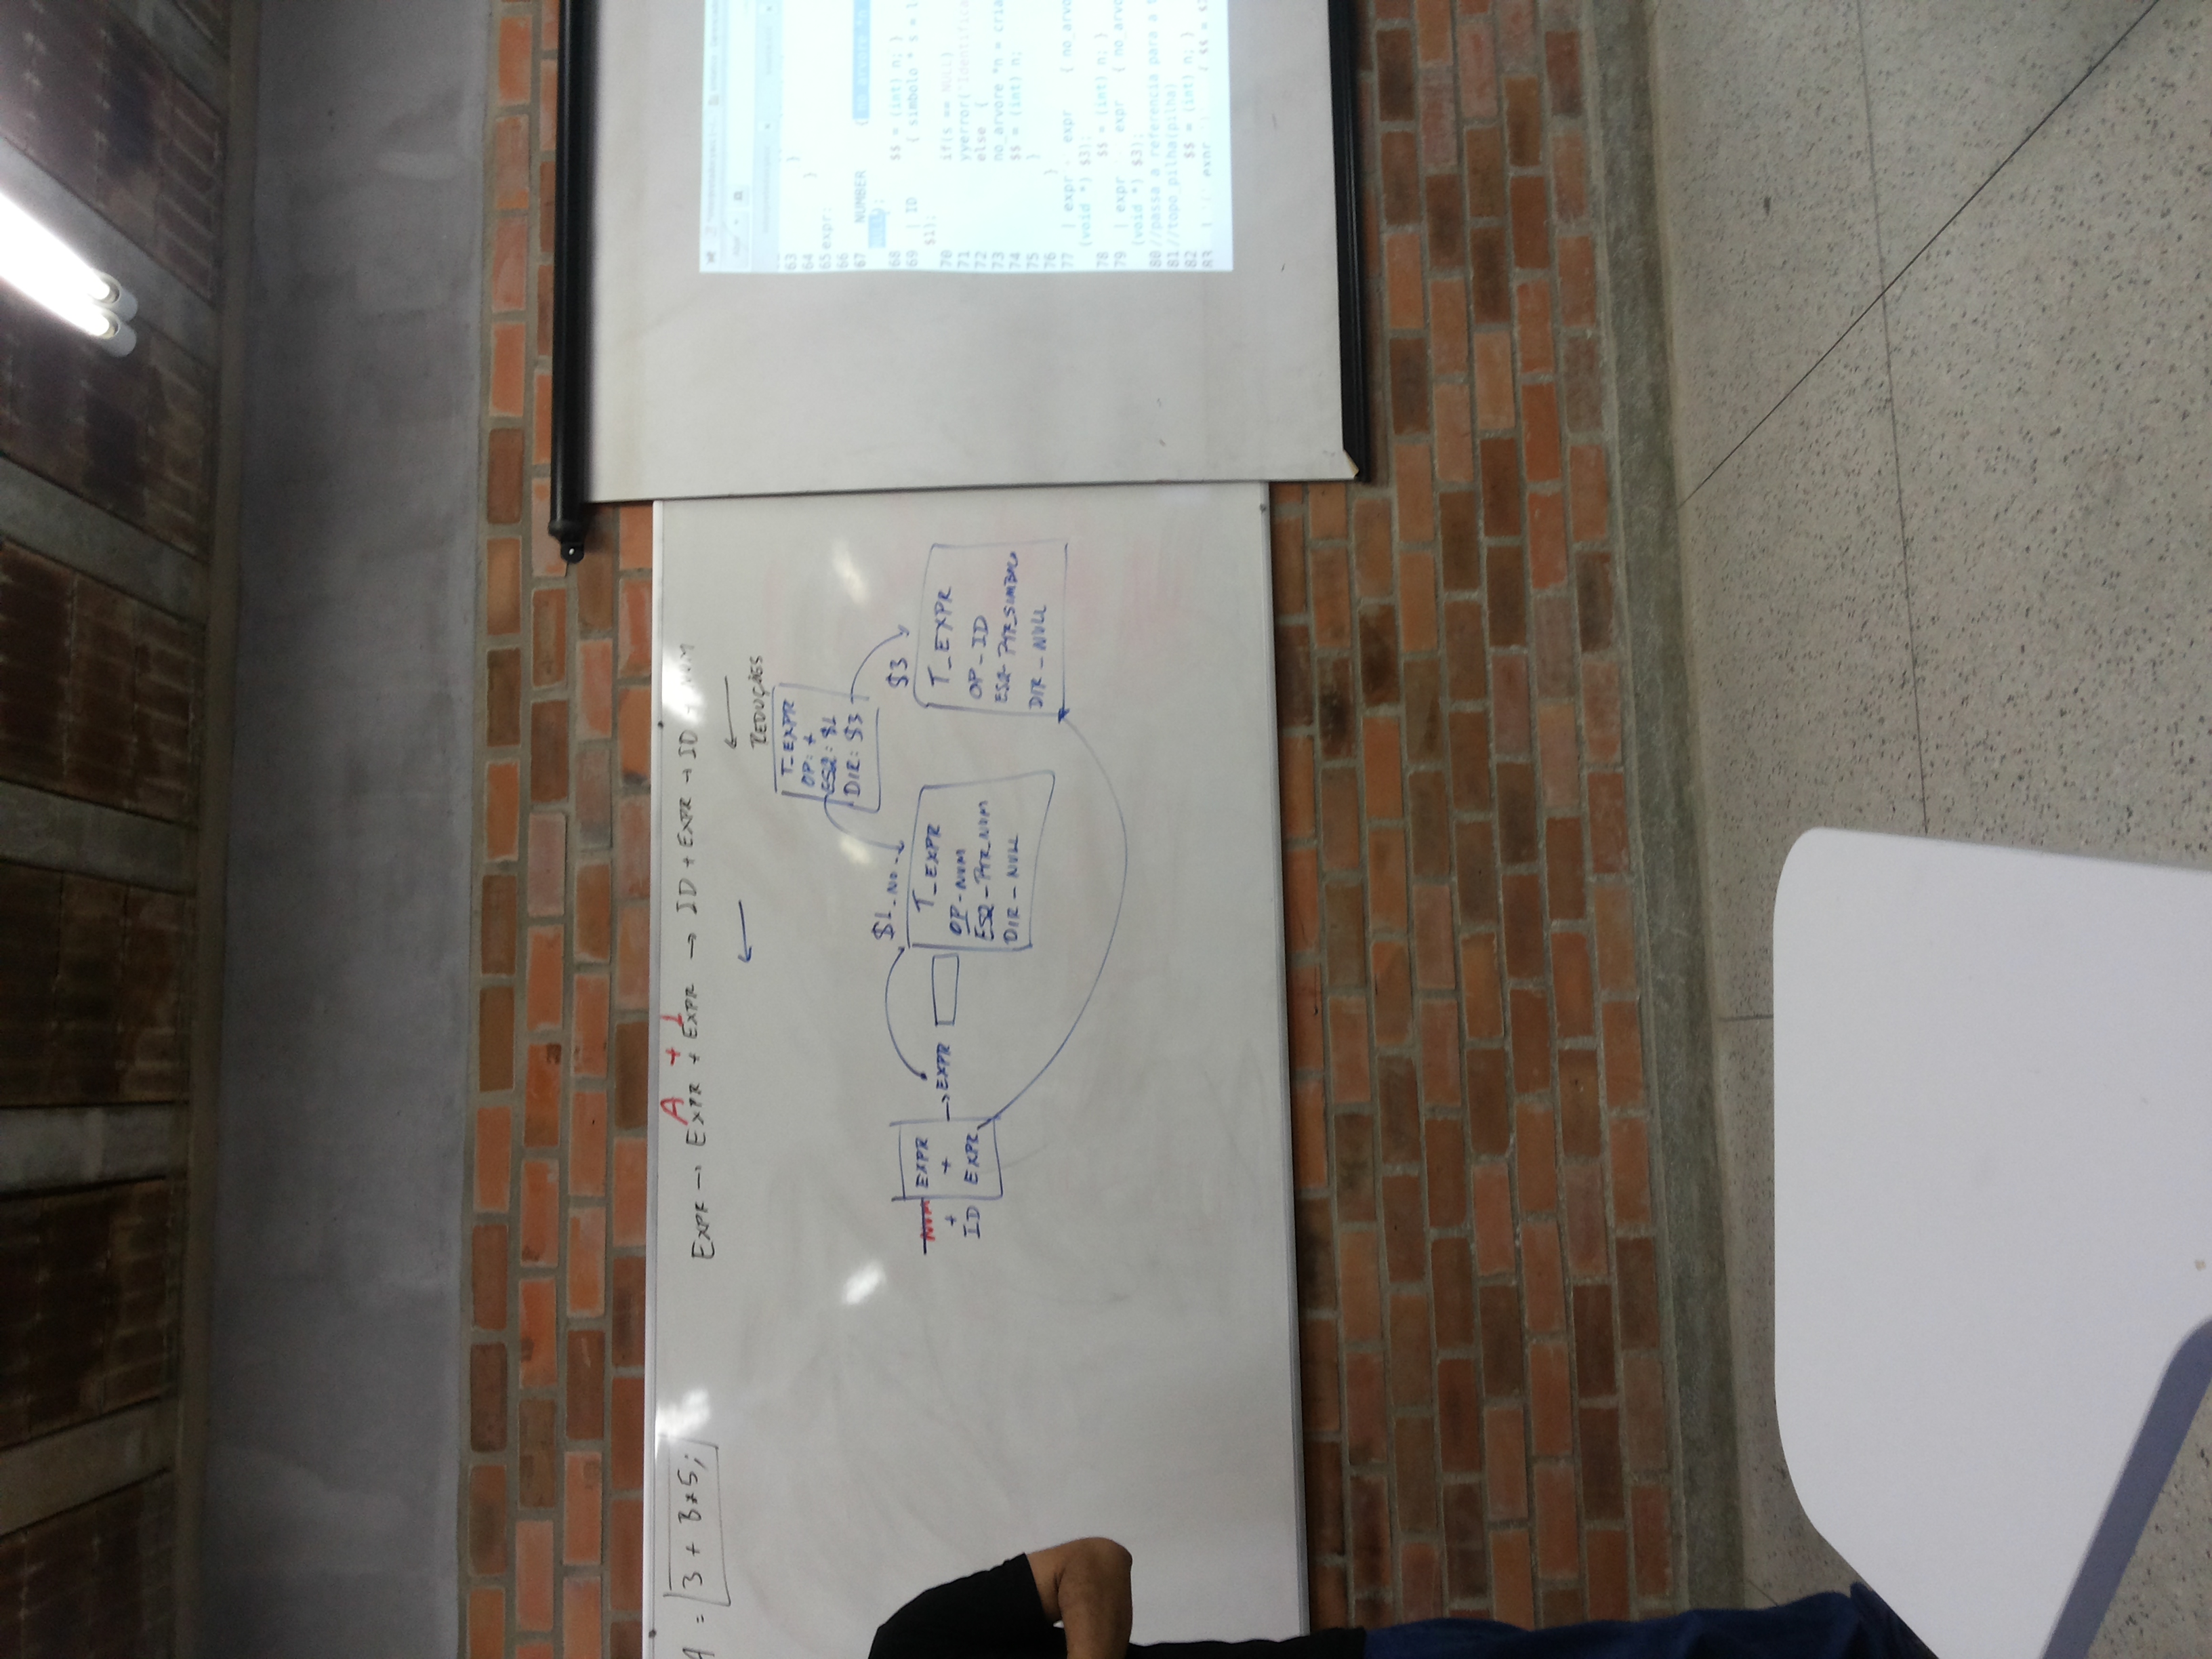 A = 3 + B*5;
A + 1
EXPR → EXPR + EXPR → ID + EXPR → ID + NUM
REDUÇÕES
T_EXPR
OP: +
ESQ: $1
DIR: $3
$1_NO_
$3
NUM
+
ID
EXPR
+
EXPR
→ EXPR
T_EXPR
OP-NUM
ESQ-PTR_NUM
DIR-NULL
T_EXPR
OP-ID
ESQ-PTR_SIMBOLO
DIR-NULL
63 }
64 }
65 expr:
66
67 NUMBER { no_arvore *n
NULL);
68 $$ = (int) n; }
69 | ID { simbolo * s = l
$1);
70 if(s == NULL)
71 yyerror("Identifica
72 else {
73 no_arvore *n = cria
74 $$ = (int) n;
75 }
76 }
77 | expr expr { no_arvo
(void *) $3);
78 $$ = (int) n; }
79 | expr expr { no_arvo
(void *) $3);
80 //passa a referencia para a t
81 //topo_pilha(pilha)
82 $$ = (int) n; }
83 | '(' expr ')' { $$ = $